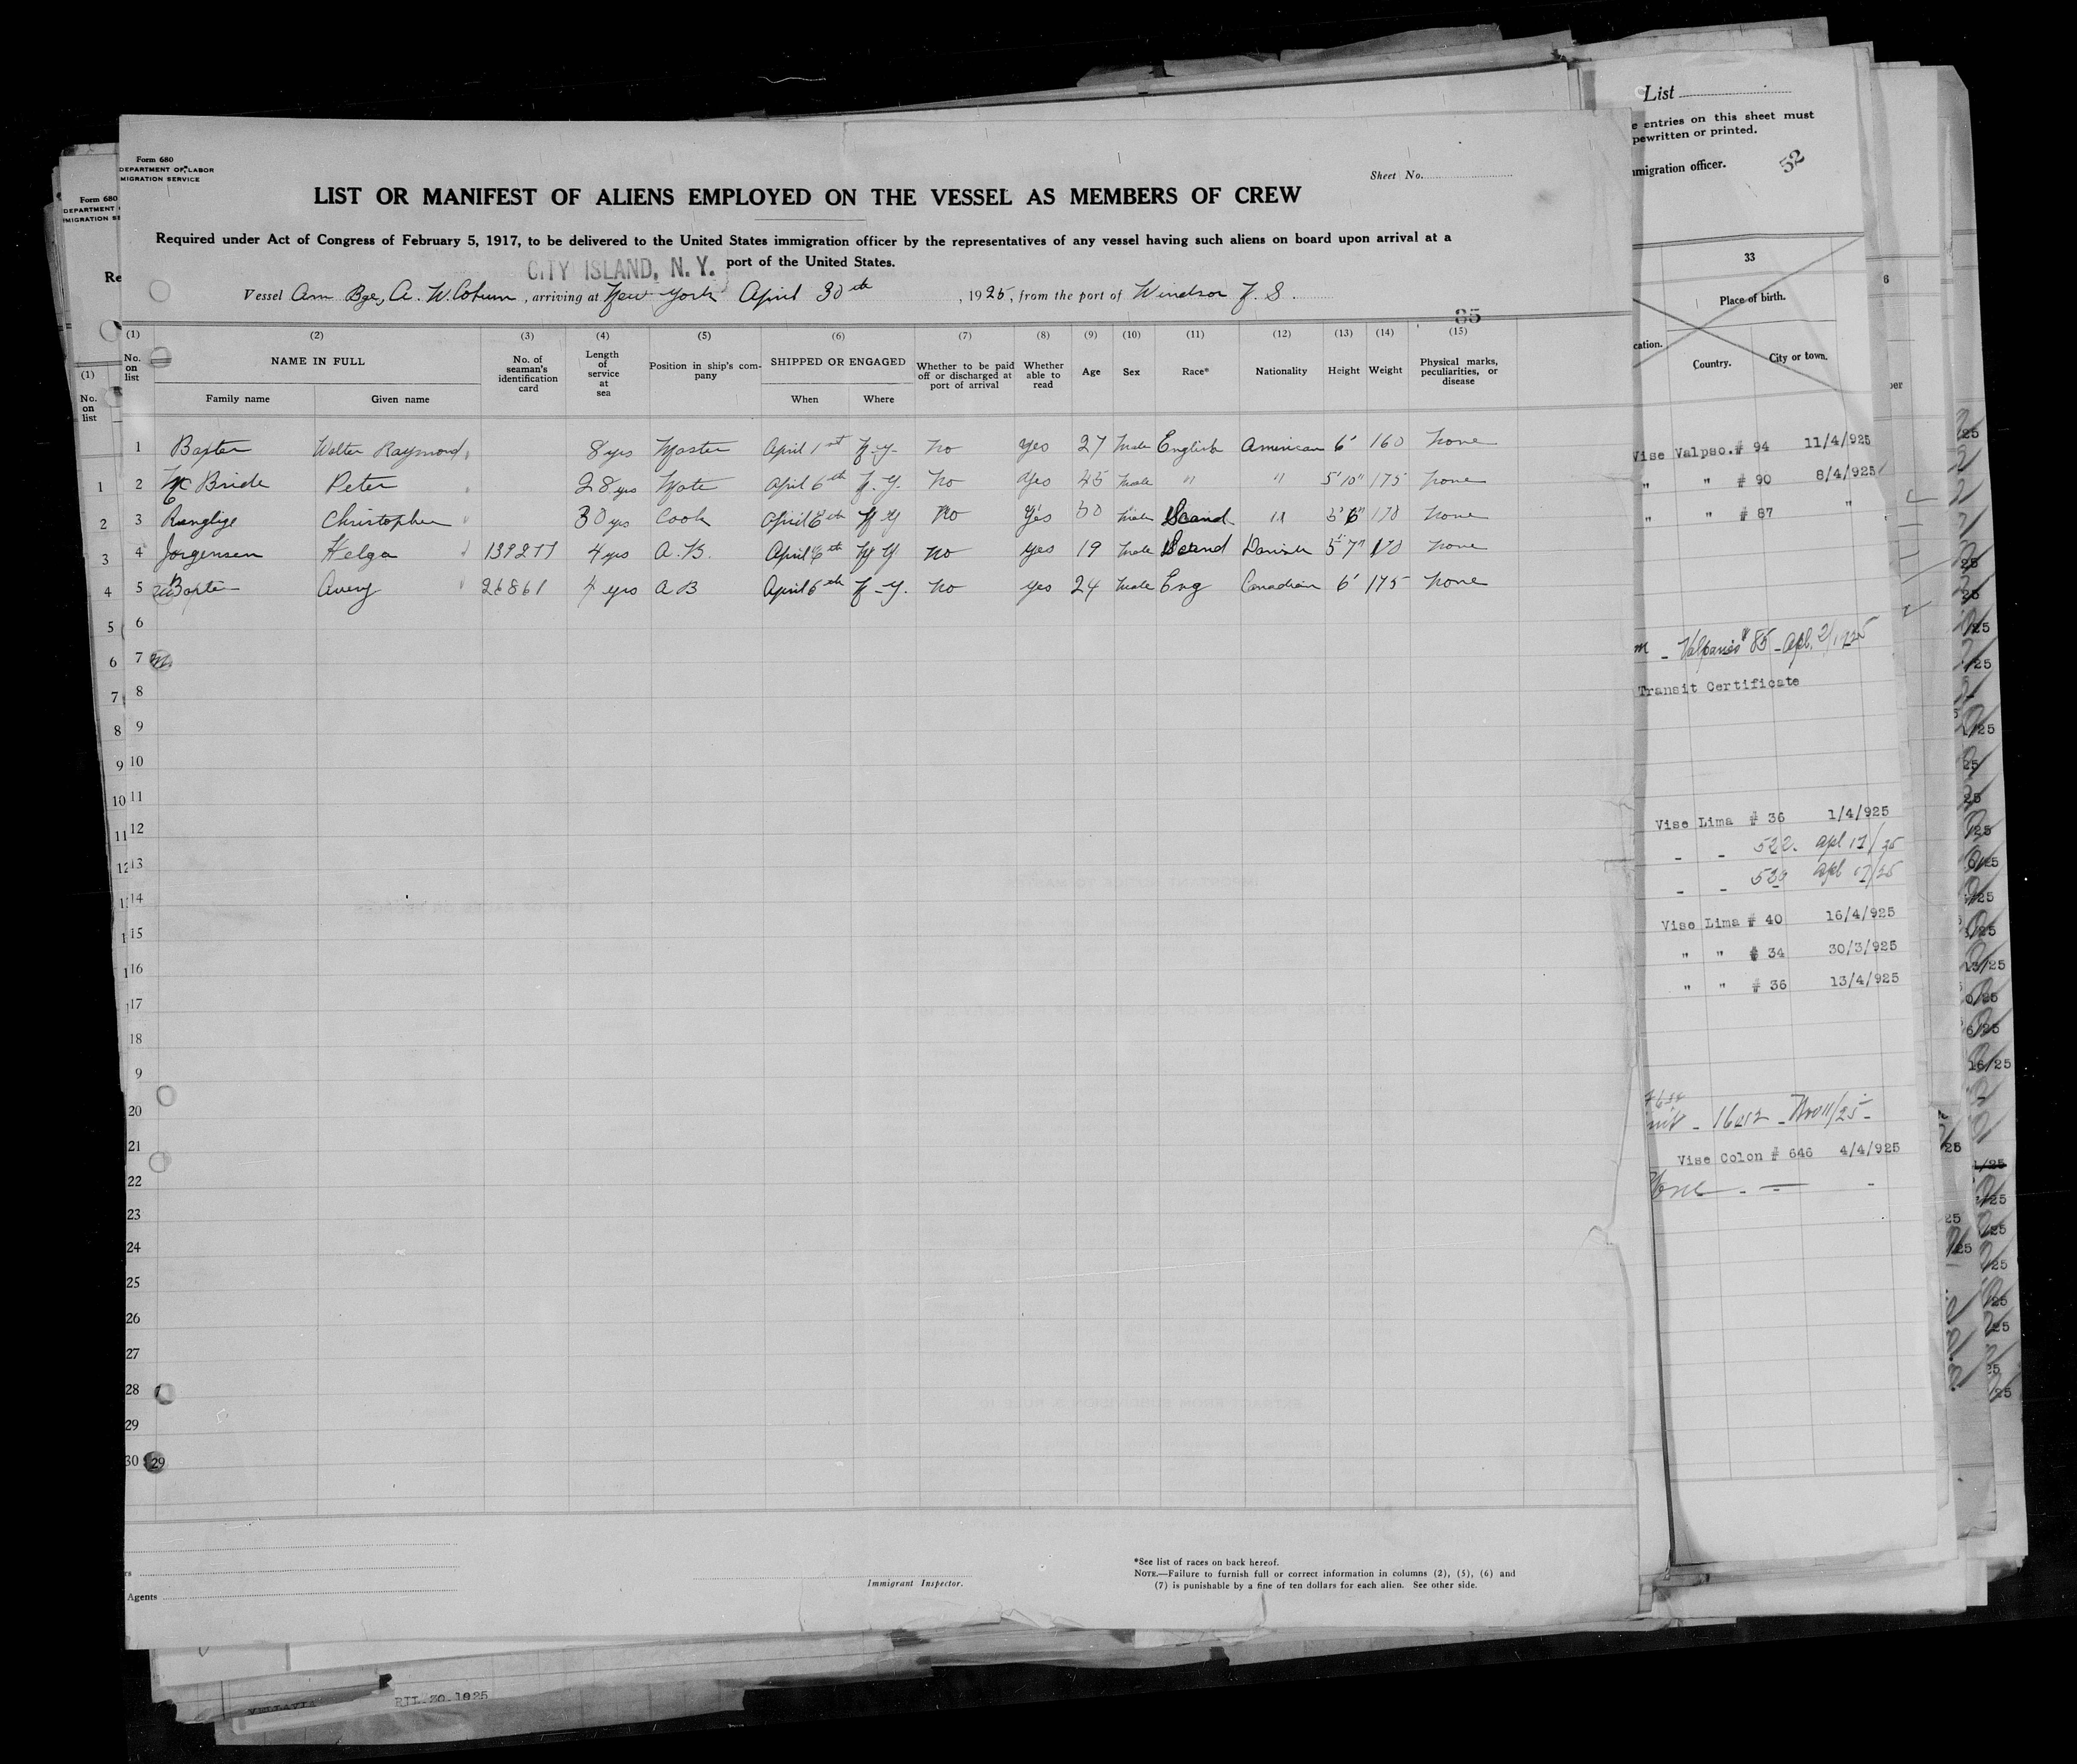 Form 680
DEPARTMENT OF LABOR
MIGRATION SERVICE
Sheet No.
LIST OR MANIFEST OF ALIENS EMPLOYED ON THE VESSEL AS MEMBERS OF CREW
Required under Act of Congress of February 5, 1917, to be delivered to the United States immigration officer by the representatives of any vessel having such aliens on board upon arrival at a
port of the United States.
CITY ISLAND, N. Y.
Vessel Am Bge, A. W. Coburn, arriving at New York April 30th, 1925, from the port of Windsor N. S.
85
(1) (2) (3) (4) (5) (6) (7) (8) (9) (10) (11) (12) (13) (14) (15)
No. on list NAME IN FULL No. of seaman's identification card Length of service at sea Position in ship's company SHIPPED OR ENGAGED Whether to be paid off or discharged at port of arrival Whether able to read Age Sex Race* Nationality Height Weight Physical marks, peculiarities, or disease
Family name Given name When Where
1 Baxter Walter Raymond 8 yrs Master April 1st N.Y. No Yes 27 Male English American 6' 160 None
2 McBride Peter 28 yrs Mate April 6th N.Y. No Yes 45 Male " " 5'10" 175 None
3 Christopher 30 yrs Cook April 6th N Y No Yes 60 Male Scand " 5'6" None
4 Jorgensen Helge 139277 4 yrs A.B. April 6th N Y No Yes 19 Male Scand Danish 5'7" 170 None
5 Baxter Avery 26861 4 yrs A B April 6th N.Y. No Yes 24 Male Eng Canadian 6' 175 None
6
7
8
9
10
11
12
13
14
15
16
17
18
9
20
21
22
23
24
25
26
27
28
29
30 29
rs
Agents
Immigrant Inspector.
*See list of races on back hereof.
NOTE.—Failure to furnish full or correct information in columns (2), (5), (6) and
(7) is punishable by a fine of ten dollars for each alien. See other side.
Form 680
DEPARTMENT
MIGRATION SE
Re
(1)
No. on list
1
2
3
4
5
6
7
8
9
10
11
List
e entries on this sheet must
pewritten or printed.
mmigration officer.
52
33
Place of birth.
cation.
Country. City or town.
Vise Valpso.# 94 11/4/925
" " # 90 8/4/925
" " # 87 "
Transit Certificate
Vise Lima # 36 1/4/925
- - 522. Apl 17/25
- - 539 Apl 17/25
Vise Lima # 40 16/4/925
" " # 34 30/3/925
" " # 36 13/4/925
Vise Colon # 646 4/4/925
None - — -
6
ber
RIL 30 1925